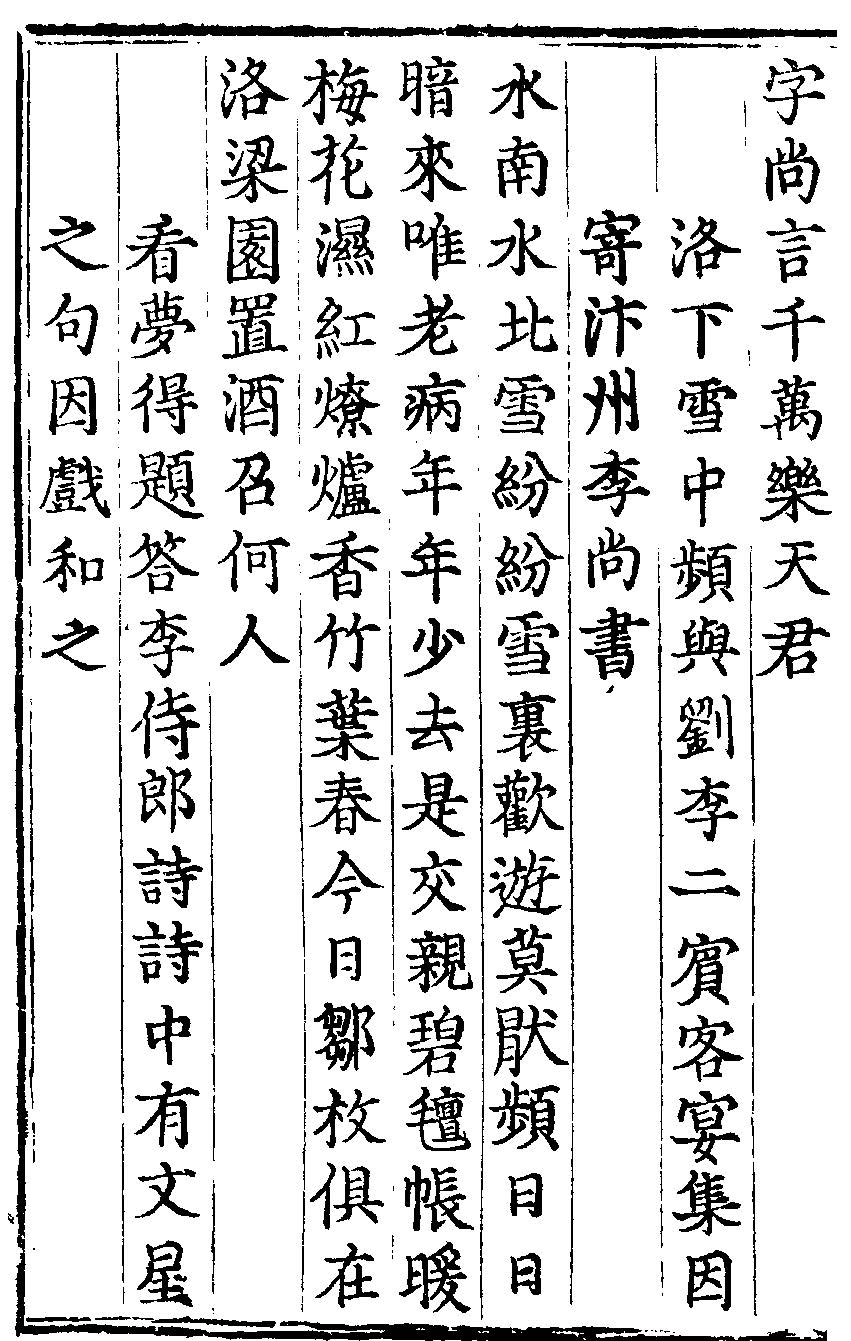 字尚言千萬樂天君
洛下雪中頻與劉李二賔客宴集因
寄汴州李尚書
水南水北雪紛紛雪裏歡遊莫猒頻日日
暗來唯老病年年少去是交親碧氊帳暖
梅花濕紅燎爐香竹葉春今日鄒枚俱在
洛梁園置酒召何人
看夢得題答李侍郎詩詩中有文星
之句因戲和之